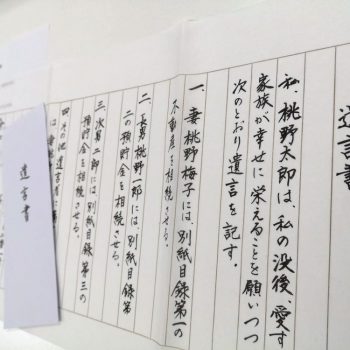 遺言書
私、桃野太郎は、私の没後、愛す
家族が幸せに栄えることを願いつつ
次のとおり遺言を記す。
一、妻桃野梅子には、別紙目録第一の
不動産を相続させる。
二、長男桃野一郎には、別紙目録第
二の預貯金を相続させる。
三、次男二郎には、別紙目録第三の
預貯金を相続させる。
四、その他遺言者に
は、
遺言書